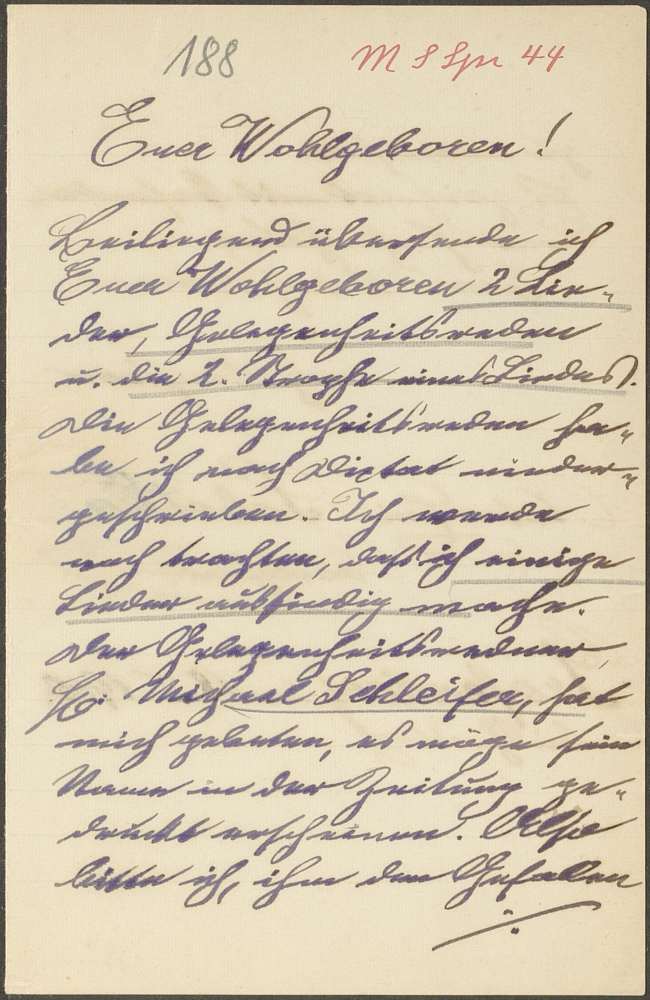 188
M S Spr 44
Euer Wohlgeboren!
Beiliegend übersende ich
Euer Wohlgeboren 2 Lie-
der, Gelegenheitsreden
u. die 2. Strophe eines Liedes.
Die Gelegenheitsreden ha-
be ich nach Dictat nieder-
geschrieben. Ich werde
noch trachten, dass ich einige
Lieder ausfindig mache.
Der Gelegenheitsredner,
H. Michael Schleifer, hat
mich gebeten, es möge sein
Name in der Zeitung ge-
druckt erscheinen. Also
bitte ich, ihm den Gefallen
./.